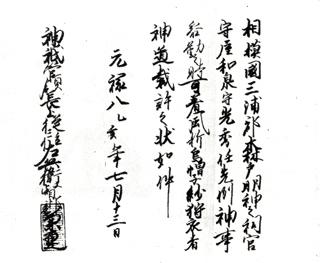 相模國三浦郡森戸明神之祠官
守屋和泉守光秀任先例神事
参勤之時可着風折烏帽子紗狩衣者
神道裁許之状如件
元禄八乙亥年七月十三日
神祇管領長上従二位